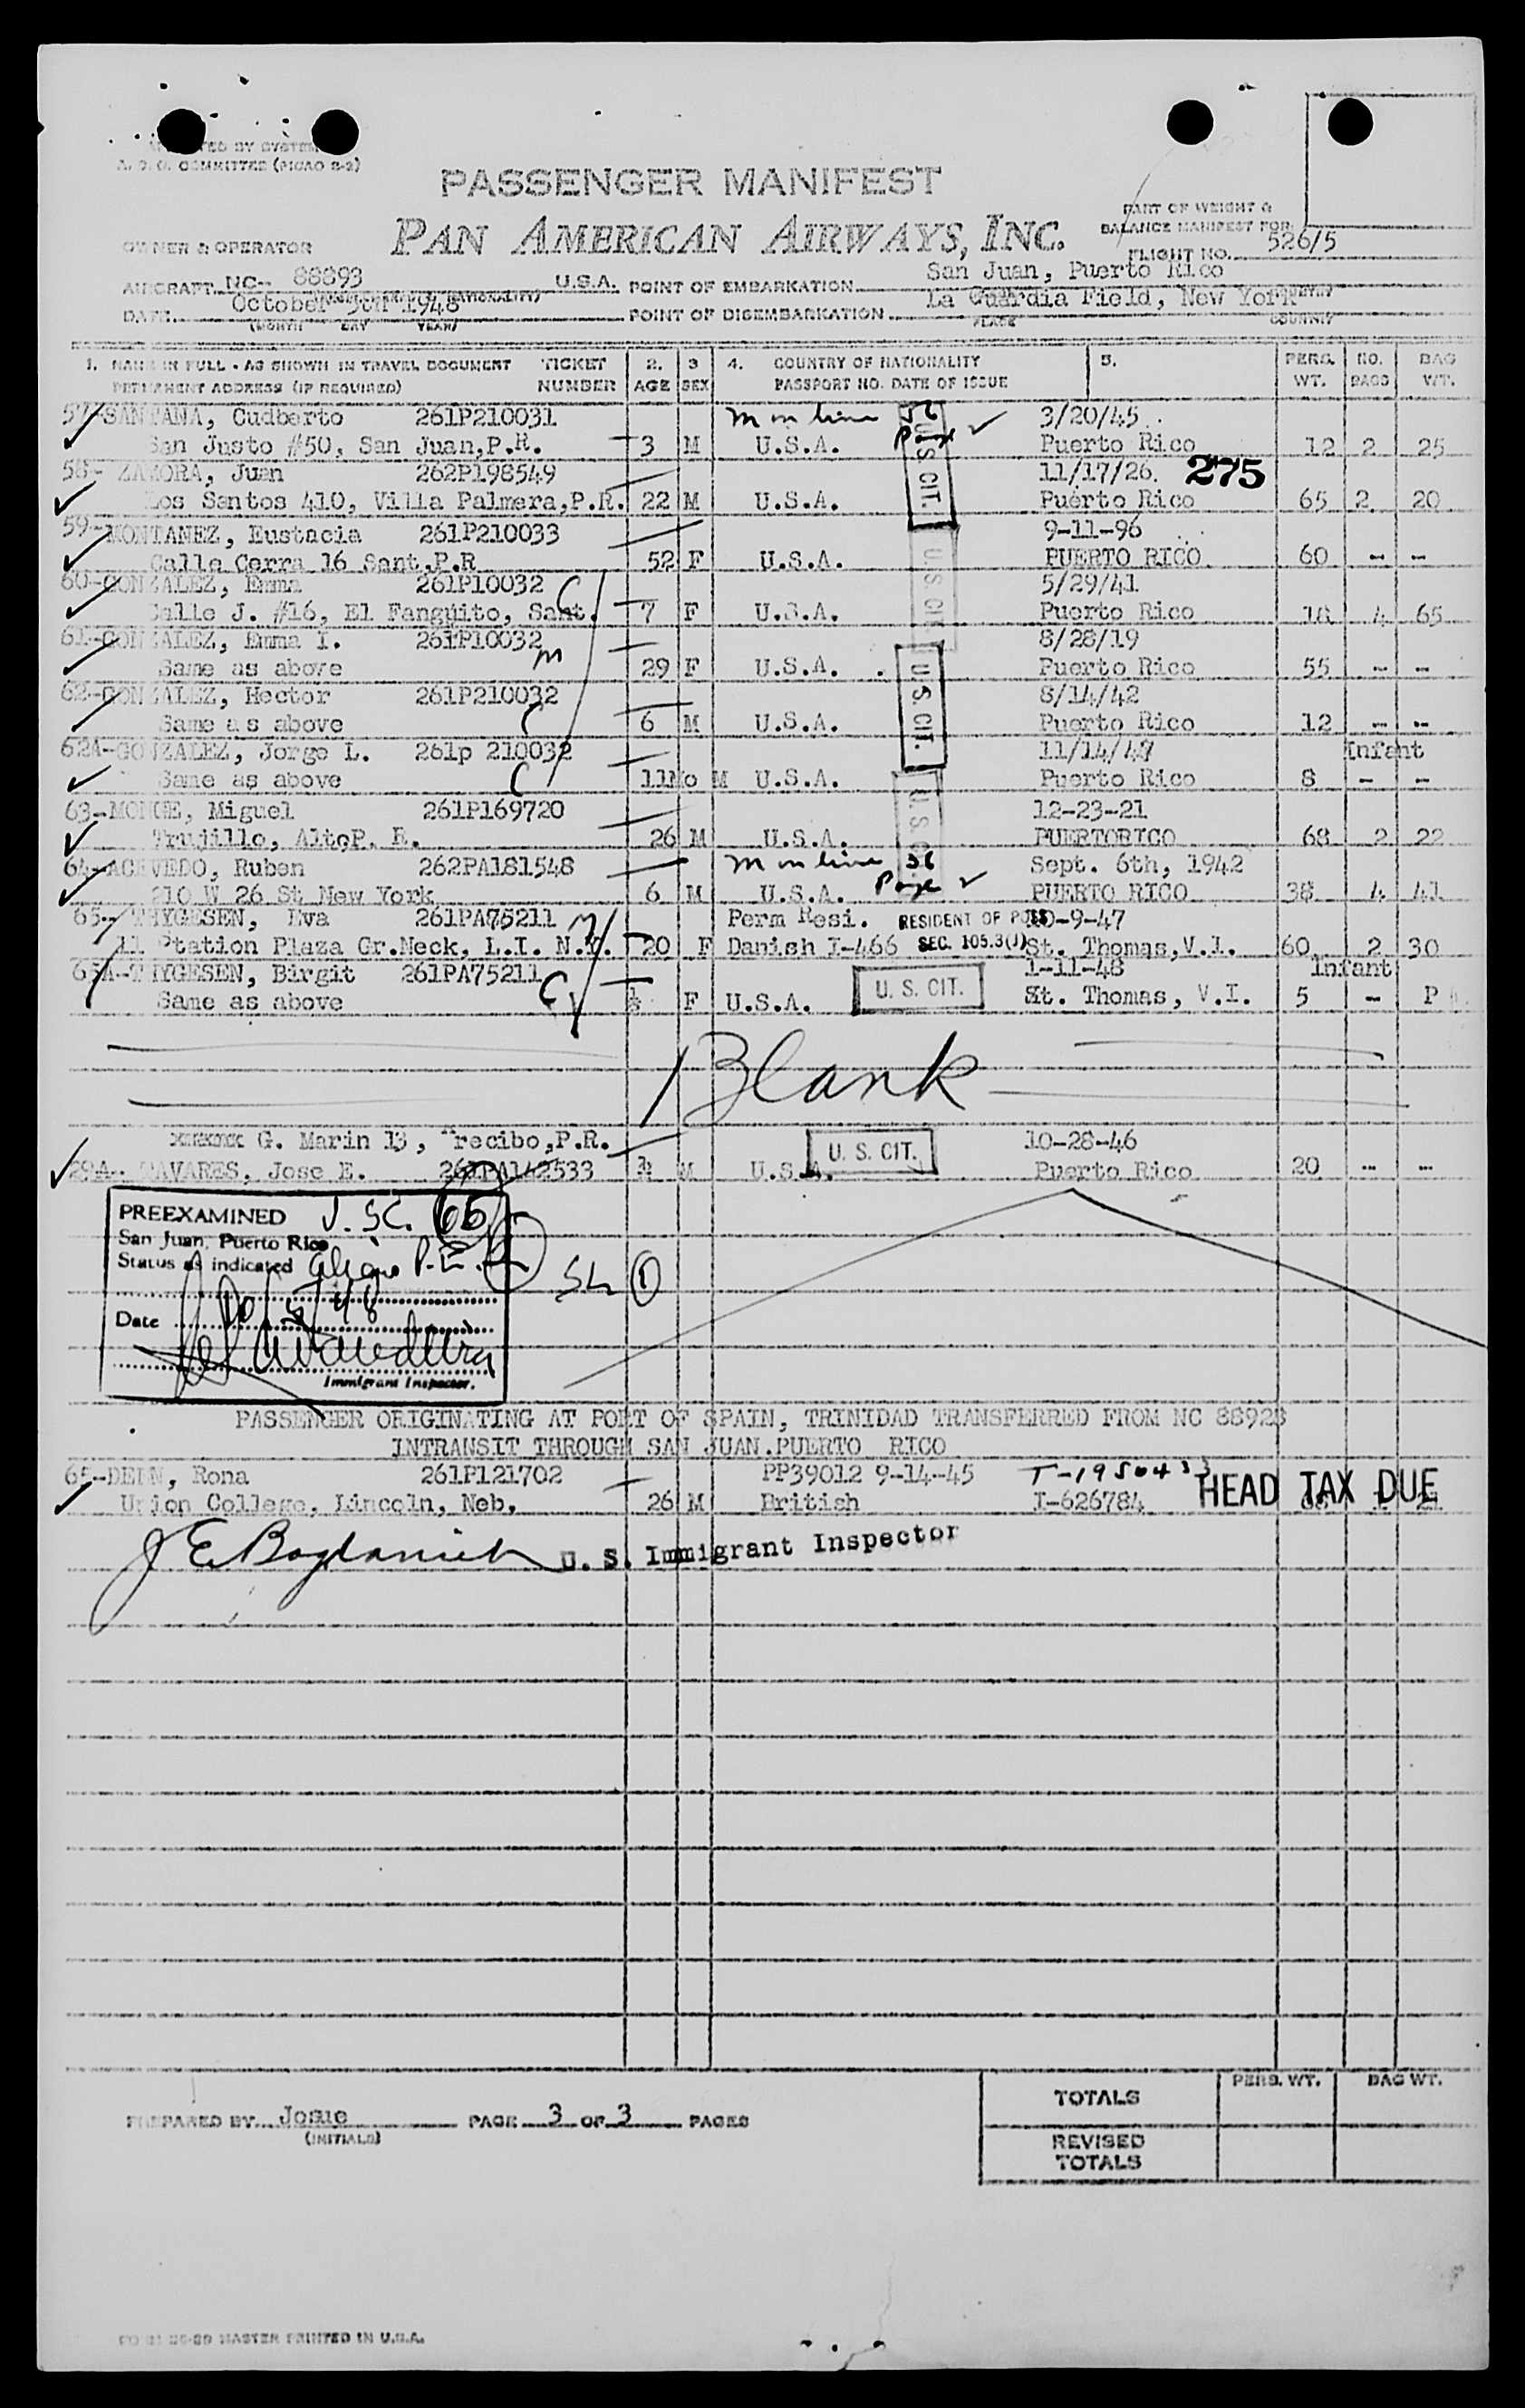 A. T. C. COMMITTEE (PICAO 2-2)
PASSENGER MANIFEST
PAN AMERICAN AIRWAYS, INC.
PART OF WEIGHT &
BALANCE MANIFEST FOR
OWNER & OPERATOR
FLIGHT NO. 526/5
AIRCRAFT NC- 88893 U.S.A. POINT OF EMBARKATION San Juan, Puerto Rico
DATE October 5th 1948 POINT OF DISEMBARKATION La Guardia Field, New York
(MONTH DAY YEAR) PLACE COUNTRY
1. NAME IN FULL - AS SHOWN IN TRAVEL DOCUMENT TICKET 2. 3 4. COUNTRY OF NATIONALITY 5. PERS. NO. BAG
PERMANENT ADDRESS (IF REQUIRED) NUMBER AGE SEX PASSPORT NO. DATE OF ISSUE WT. BAGS WT.
57-SANTANA, Cudberto 261P210031 M on line 56 3/20/45
San Justo #50, San Juan,P.R. 3 M U.S.A. Page Puerto Rico 12 2 25
58- ZAMORA, Juan 262P198549 11/17/26. 275
Los Santos 410, Villa Palmera,P.R. 22 M U.S.A. U.S. CIT. Puerto Rico 65 2 20
59-MONTANEZ, Eustacia 261P210033 9-11-96
Calle Cerra 16 Sant.P.R 52 F U.S.A. PUERTO RICO 60 -- --
60-GONZALEZ, Emma 261P10032 C U.S. CIT. 5/29/41
Calle J. #16, El Fanguito, Sant. 7 F U.S.A. Puerto Rico 18 4 65
61-GONZALEZ, Emma I. 261P10032 m 8/28/19
Same as above 29 F U.S.A. Puerto Rico 55 -- --
62-GONZALEZ, Hector 261P210032 U.S. CIT. 8/14/42
Same as above C 6 M U.S.A. Puerto Rico 12 -- --
62A-GONZALEZ, Jorge L. 261p 210032 11/14/47 Infant
Same as above C 11Mo M U.S.A. Puerto Rico 8 - -
63-MONGE, Miguel 261P169720 12-23-21
Trujillo, AltoP. R. 26 M U.S.A. PUERTORICO 68 2 22
64-ACEVEDO, Ruben 262PA181548 M on line 56 Sept. 6th, 1942
210 W 26 St New York 6 M U.S.A. Page PUERTO RICO 38 4 41
65-THYGESEN, Eva 261PA75211 M Perm Resi. RESIDENT OF POSS 10-9-47
11 Station Plaza Gr.Neck, L.I. N.Y. 20 F Danish I-466 SEC. 105.3(J) St. Thomas,V.I. 60 2 30
65A-THYGESEN, Birgit 261PA75211 1-11-48 Infant
Same as above C ½ F U.S.A. U. S. CIT. St. Thomas, V.I. 5 - P
Blank
G. Marin 13, Arecibo,P.R. U. S. CIT. 10-28-46
29A- TAVARES, Jose E. 261PA142533 ½ M U.S.A. Puerto Rico 20 -- --
PREEXAMINED U.S.C. 65
San Juan, Puerto Rico
Status as indicated aliens P.R.
SL 1
Date
Immigrant Inspector.
PASSENGER ORIGINATING AT PORT OF SPAIN, TRINIDAD TRANSFERRED FROM NC 88923
INTRANSIT THROUGH SAN JUAN.PUERTO RICO
Rona 261P121702 PP39012 9-14-45
Union College, Lincoln, Neb. 26 M British I-626784 HEAD TAX DUE
U. S. Immigrant Inspector
PREPARED BY Josue PAGE 3 OF 3 PAGES
(INITIALS)
PERS. WT. BAG WT.
TOTALS
REVISED
TOTALS
MASTER PRINTED IN U.S.A.